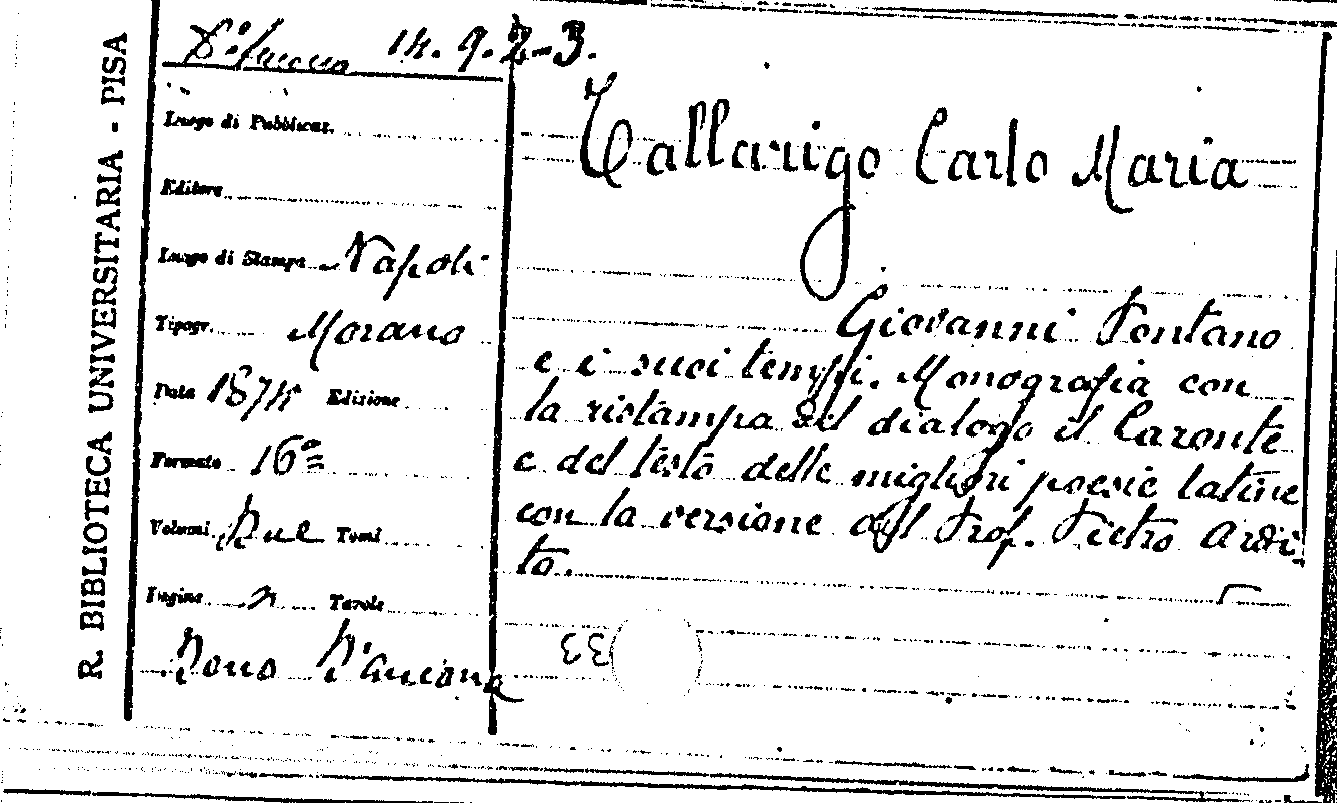 R. BIBLIOTECA UNIVERSITARIA - PISA
D'Ancona 14. 9. 2-3.
Luogo di Pubblicaz.
Editore
Luogo di Stampa Napoli
Tipogr. Morano
Data 1874 Edizione
Formato 16º
Volumi Due Tomi
Pagine " Tavole
Dono D'Ancona
Tallarigo Carlo Maria
Giovanni Pontano
e i suoi tempi. Monografia con
la ristampa del dialogo il Caronte
e del testo delle migliori poesie latine
con la versione del Prof. Pietro Ardi-
to.